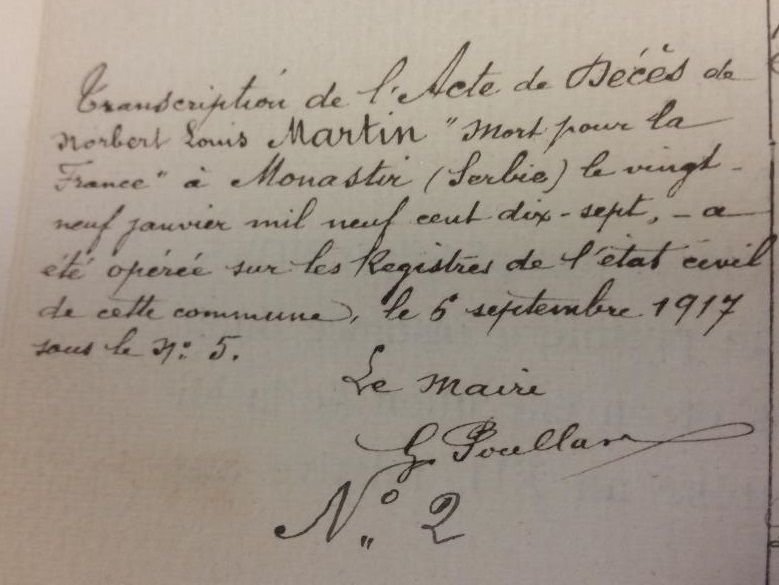 Transcription de l'Acte de Décès de
Norbert Louis Martin "Mort pour la
France" à Monastir (Serbie) le vingt-
neuf janvier mil neuf cent dix-sept, - a
été opérée sur les Registres de l'état civil
de cette commune, le 6 septembre 1917
sous le N:o 5.
Le Maire
G Poullan
No 2